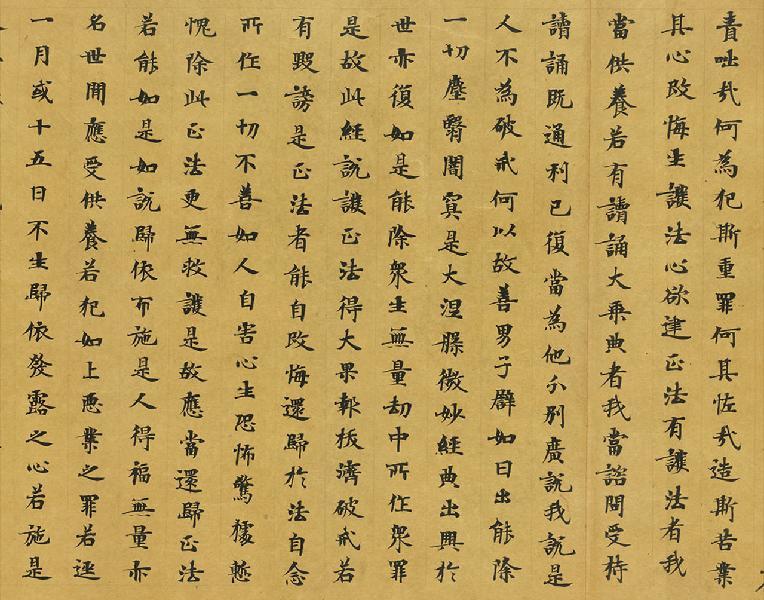 責咄哉何為犯斯重罪何其恠哉造斯苦業
其心改悔生護法心欲建正法有護法者我
當供養若有讀誦大乗典者我當諮問受持
讀誦既通利已復當為他分別廣說我說是
人不為破戒何以故善男子辟如日出能除
一切塵翳闇冥是大涅槃微妙經典出興於
世亦復如是能除衆生無量劫中所作衆罪
是故此經說護正法得大果報拔濟破戒若
有毀謗是正法者能自改悔還歸於法自念
所作一切不善如人自害心生恐怖驚懅慙
愧除此正法更無救護是故應當還歸正法
若能如是如說歸依布施是人得福無量亦
名世間應受供養若犯如上惡業之罪若逕
一月或十五日不生歸依發露之心若施是